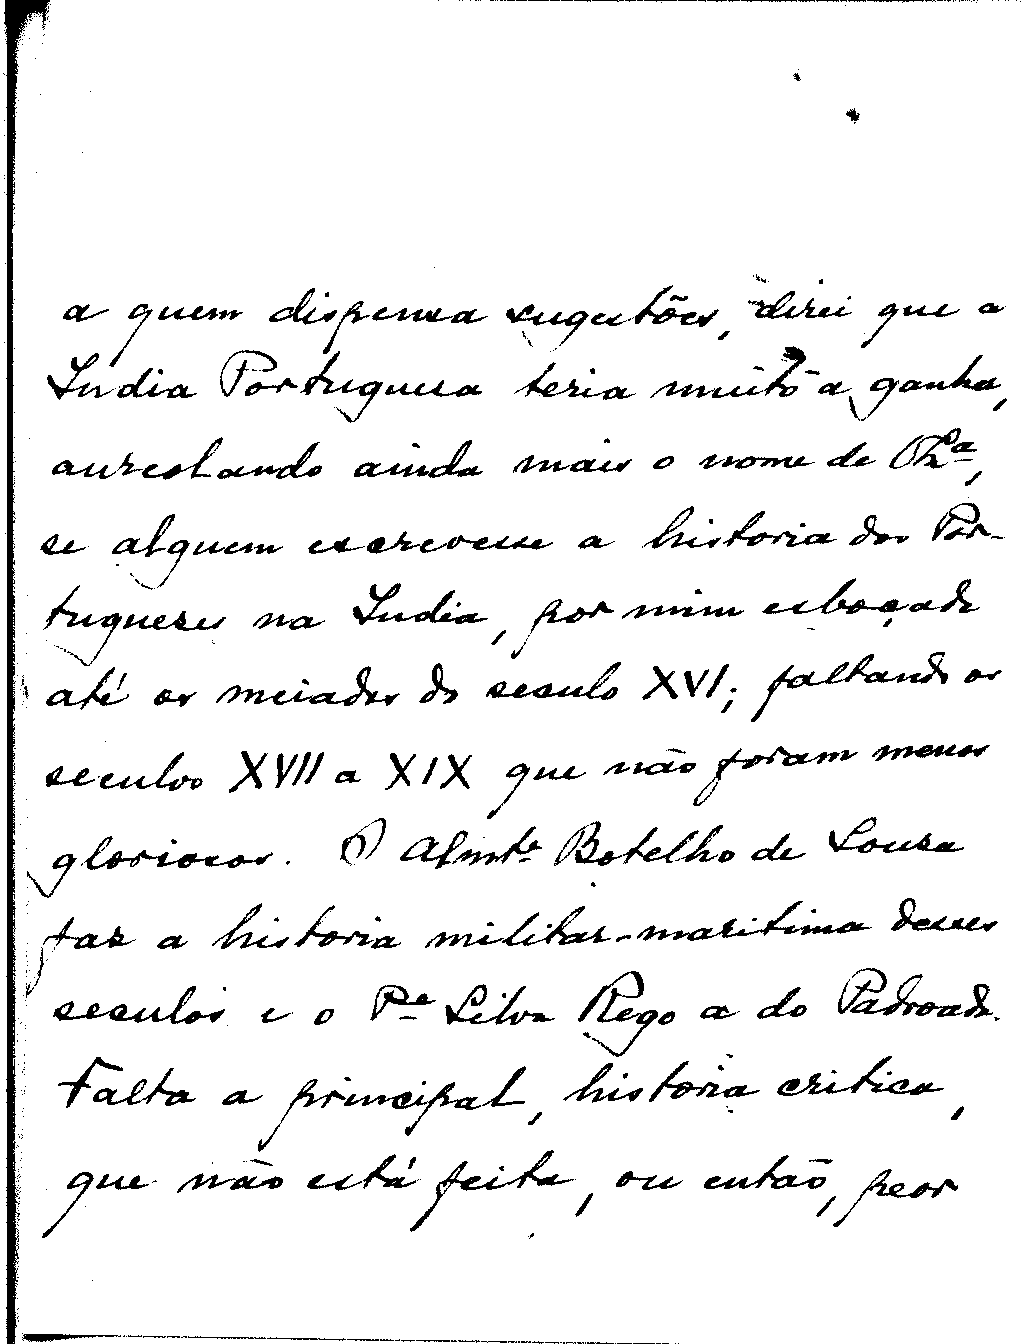 a quem dispensa sugestões, direi que a
India Portuguesa teria muito a ganhar,
aureolando ainda mais o nome de V. Exª,
se alguem escrevesse a historia dos Por-
tugueses na India, por mim esboçada
até os meiados do seculo XVI; faltando os
seculos XVII a XIX que não foram menos
gloriosos. O Almte Botelho de Sousa
faz a historia militar-maritima desses
seculos e o Pe Silva Rego a do Padroado.
Falta a principal, historia critica,
que não está feita, ou então, peor